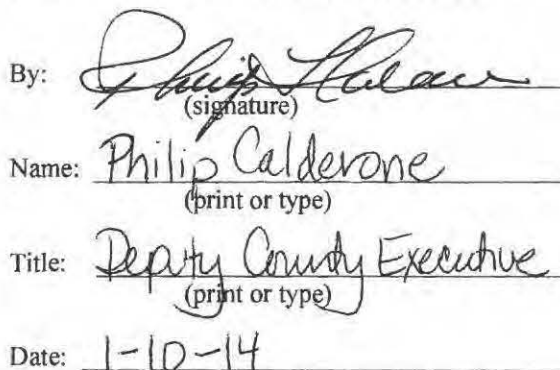 By:
(signature)
Name: Philip Calderone
(print or type)
Title: Deputy County Executive
(print or type)
Date: 1-10-14